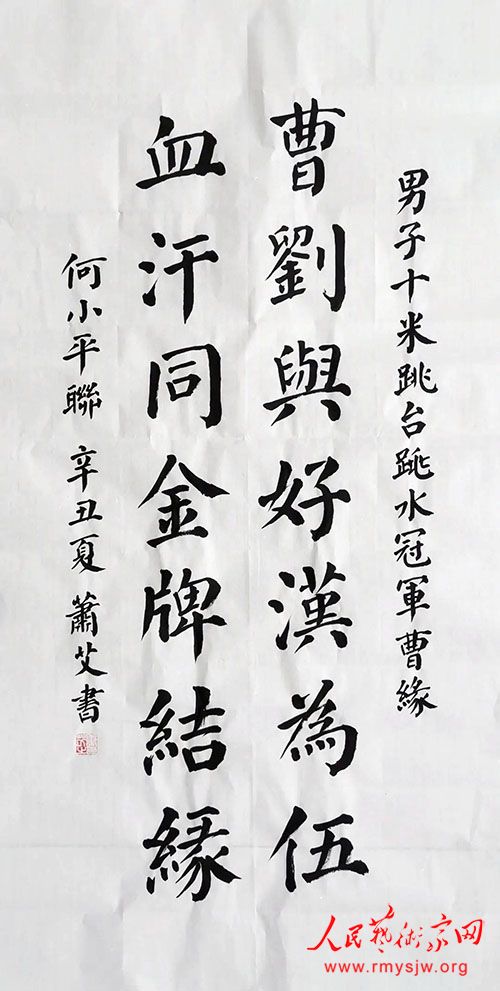 男子十米跳台跳水冠軍曹緣
曹劉與好漢為伍
血汗同金牌結緣
何小平聯 辛丑夏 蕭艾書
人民藝術家网
www.rmysjw.org